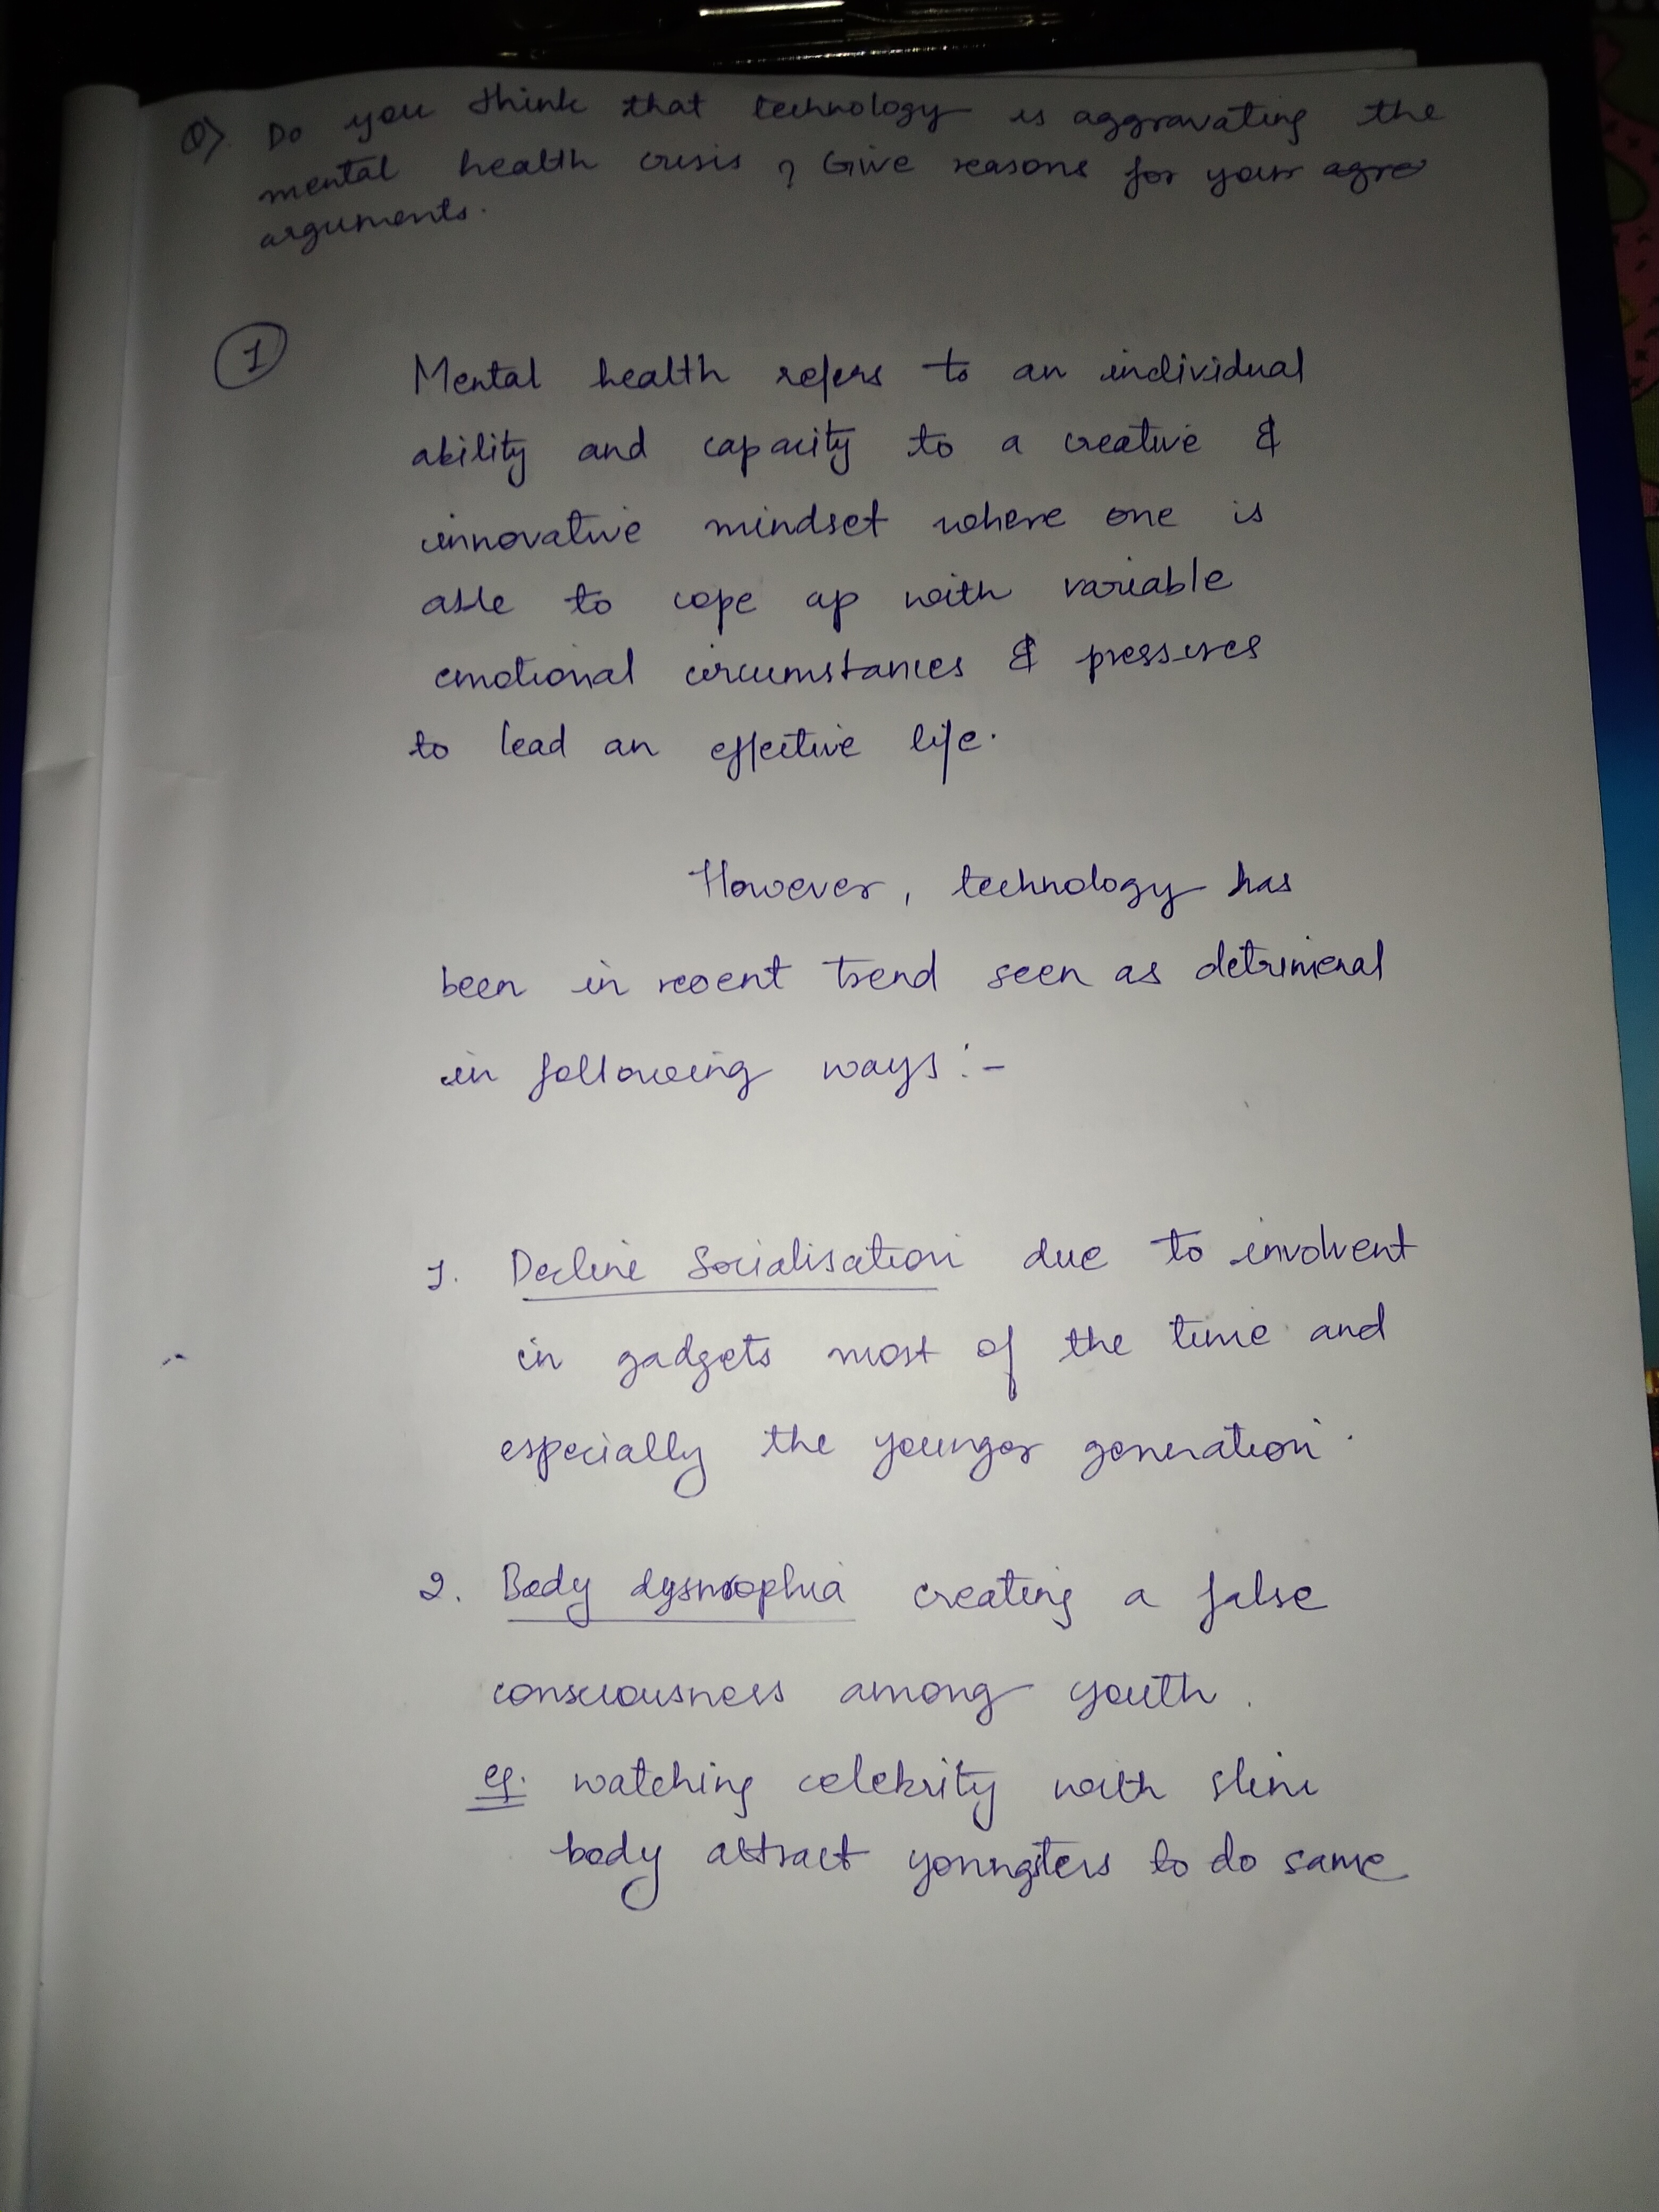 Q). Do you think that technology is aggravating the
mental health crisis ? Give reasons for your agre
arguments.
1
Mental health refers to an individual
ability and capacity to a creative &
innovative mindset where one is
able to cope up with variable
emotional circumstances & pressures
to lead an effective life.
However, technology has
been in recent trend seen as detrimenal
in following ways :-
1. Decline Socialisation due to involvent
in gadgets most of the time and
especially the younger generation.
2. Body dysmrophia creating a false
consciousness among youth.
eg. watching celebrity with slim
body attract youngsters to do same